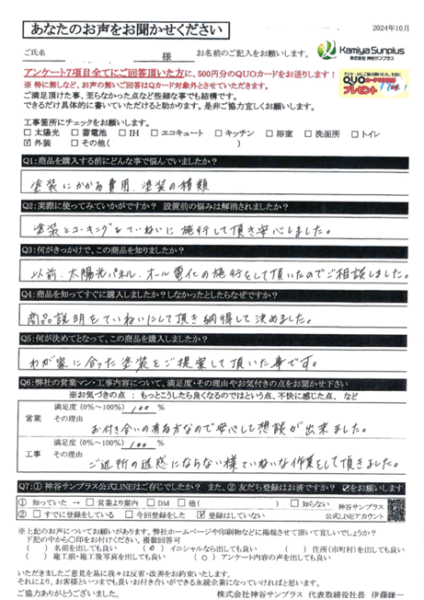 あなたのお声をお聞かせください
2024年10月
ご氏名 様 お名前のご記入をお願いします。
Kamiya Sunplus
株式会社 神谷サンプラス
アンケート7項目全てにご回答頂いた方に、500円分のQUOカードをお送りします！
※ 特に無しなど、お声の無いご回答はQカード対象外とさせていただきます。
QUOカード
プレゼント
ご満足頂けた事、至らなかった点など些細な事でも結構です。
できるだけ具体的に書いていただけると助かります。是非ご協力宜しくお願いします。
工事箇所にチェックをお願いします。
□ 太陽光 □ 蓄電池 □ IH □ エコキュート □ キッチン □ 浴室 □ 洗面所 □ トイレ
☑ 外装 □ その他( )
Q1:商品を購入する前にどんな事で悩んでいましたか？
塗装にかかる費用、塗装の種類
Q2:実際に使ってみていかがですか？ 設置前の悩みは解消されましたか？
塗装とコーキングをていねいに施行して頂き安心しました。
Q3:何がきっかけで、この商品を知りましたか？
以前、太陽光パネル、オール電化の施行をして頂いたのでご相談しました。
Q4:商品を知ってすぐに購入しましたか？しなかったとしたらなぜですか？
商品説明をていねいにして頂き納得して決めました。
Q5:何が決めてとなって、この商品を購入しましたか？
わが家に合った塗装をご提案して頂いた事です。
Q6:弊社の営業マン・工事内容について、満足度・その理由やお気付きの点をお聞かせ下さい
※お気づきの点 : もっとこうしたら良くなるのではという点、不快に感じた点、など
営業 満足度(0%～100%) 100 %
その理由
お付き合いの有る方なので安心して相談が出来ました。
工事 満足度(0%～100%) 100 %
その理由
ご近所の迷惑にならない様ていねいな作業をして頂きました。
Q7:① 神谷サンプラス公式LINEはご存じでしたか？ また、② 友だち登録はお済ですか？ ☑をお願いします
① 知っていた → □ 営業より案内 □ DM □ 他( ) □ 知らない
② □ すでに登録をしている □ 今回登録をした ☑ 登録はしていない
神谷サンプラス
公式LINEアカウント
※上記のお声についてお願いがあります。弊社ホームページや印刷物などに掲載させて頂いて宜しいでしょうか？
下記の中から〇印をお付けください。複数回答可
( ) 名前を出しても良い (○) イニシャルなら出しても良い ( ) 住所(市町村)を出しても良い
( ) 施工前・施工後写真を出しても良い (○) アンケート内容の声を出しても良い
いただきましたご意見を基に我々は反省・改善をお約束いたします。
それにより、お客様といつまでも長いお付き合いができる永続企業になっていければと思います。
ご協力ありがとうございました。
株式会社神谷サンプラス 代表取締役社長 伊藤謙一